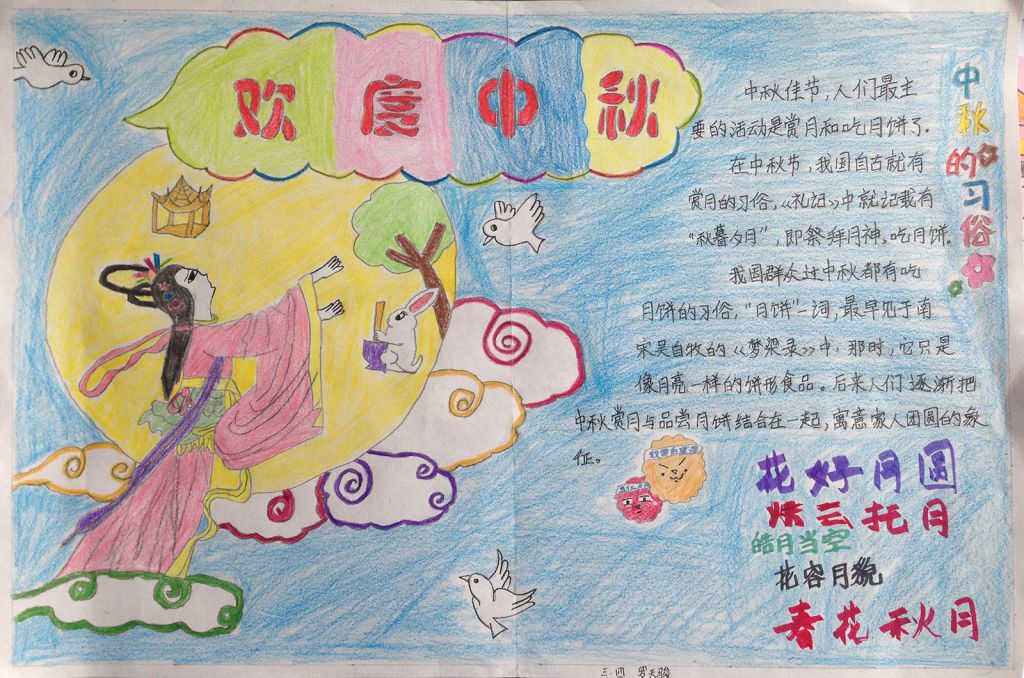 欢度中秋
中秋的习俗
中秋佳节，人们最主
要的活动是赏月和吃月饼了.
在中秋节，我国自古就有
赏月的习俗，《礼记》中就记载有
“秋暮夕月”，即祭拜月神。吃月饼。
我国群众过中秋都有吃
月饼的习俗，“月饼”一词，最早见于南
宋吴自牧的《梦梁录》中，那时，它只是
像月亮一样的饼形食品。后来人们逐渐把
中秋赏月与品尝月饼结合在一起，寓意家人团圆的象
征。
花好月圆
烘云托月
皓月当空
花容月貌
春花秋月
三.四 罗天骏